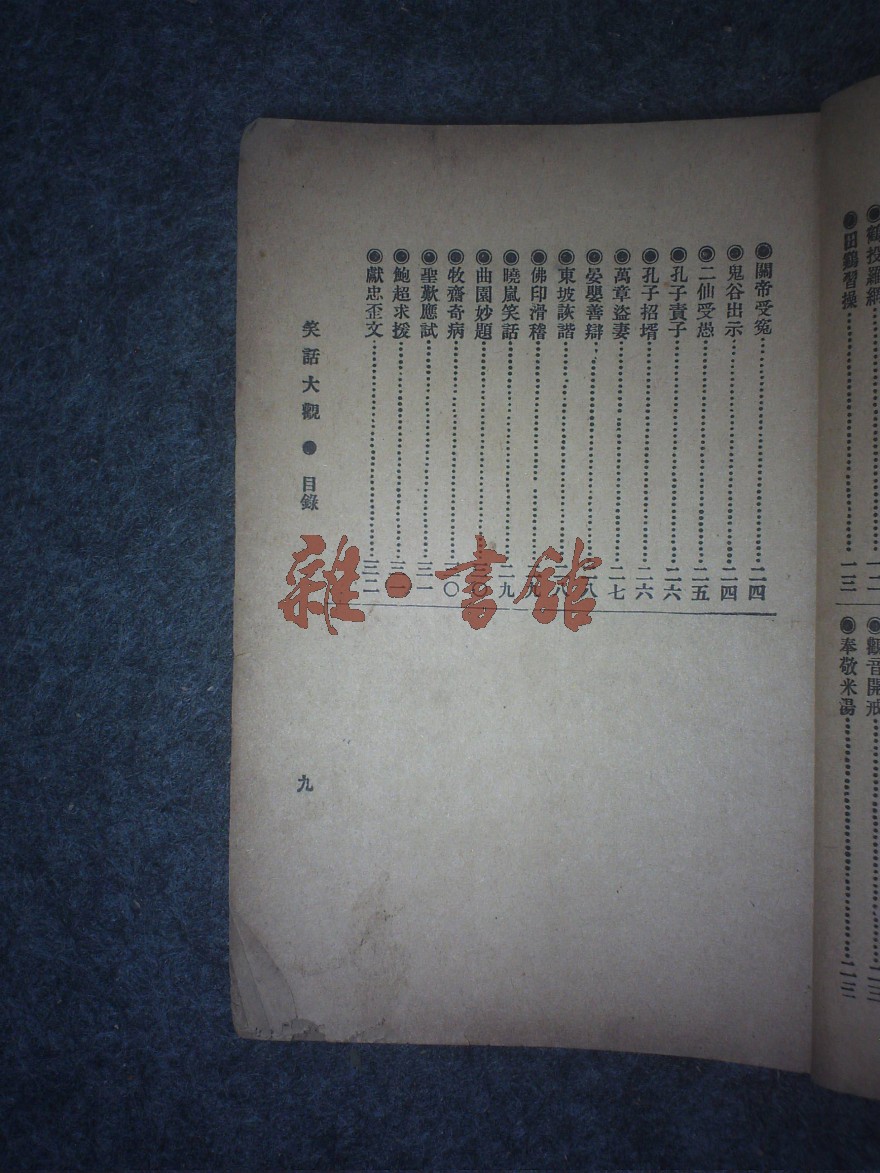 鶴投羅網⋯⋯一二
田鷄習操⋯⋯一三
觀音開戒⋯⋯一三
奉敬米湯⋯⋯二三
◉關帝受冤⋯⋯二四
◉鬼谷出示⋯⋯二四
◉二仙受愚⋯⋯二五
◉孔子責子⋯⋯二六
◉孔子招壻⋯⋯二六
◉萬章盜妻⋯⋯二七
◉晏嬰善辯⋯⋯二八
◉東坡詼諧⋯⋯二八
◉佛印滑稽⋯⋯二九
◉曉嵐笑話⋯⋯二九
◉曲園妙題⋯⋯三〇
◉牧齋奇病⋯⋯三〇
◉聖歎應試⋯⋯三一
◉鮑超求援⋯⋯三一
◉獻忠歪文⋯⋯三二
笑話大觀 ● 目錄
九
雜·書館